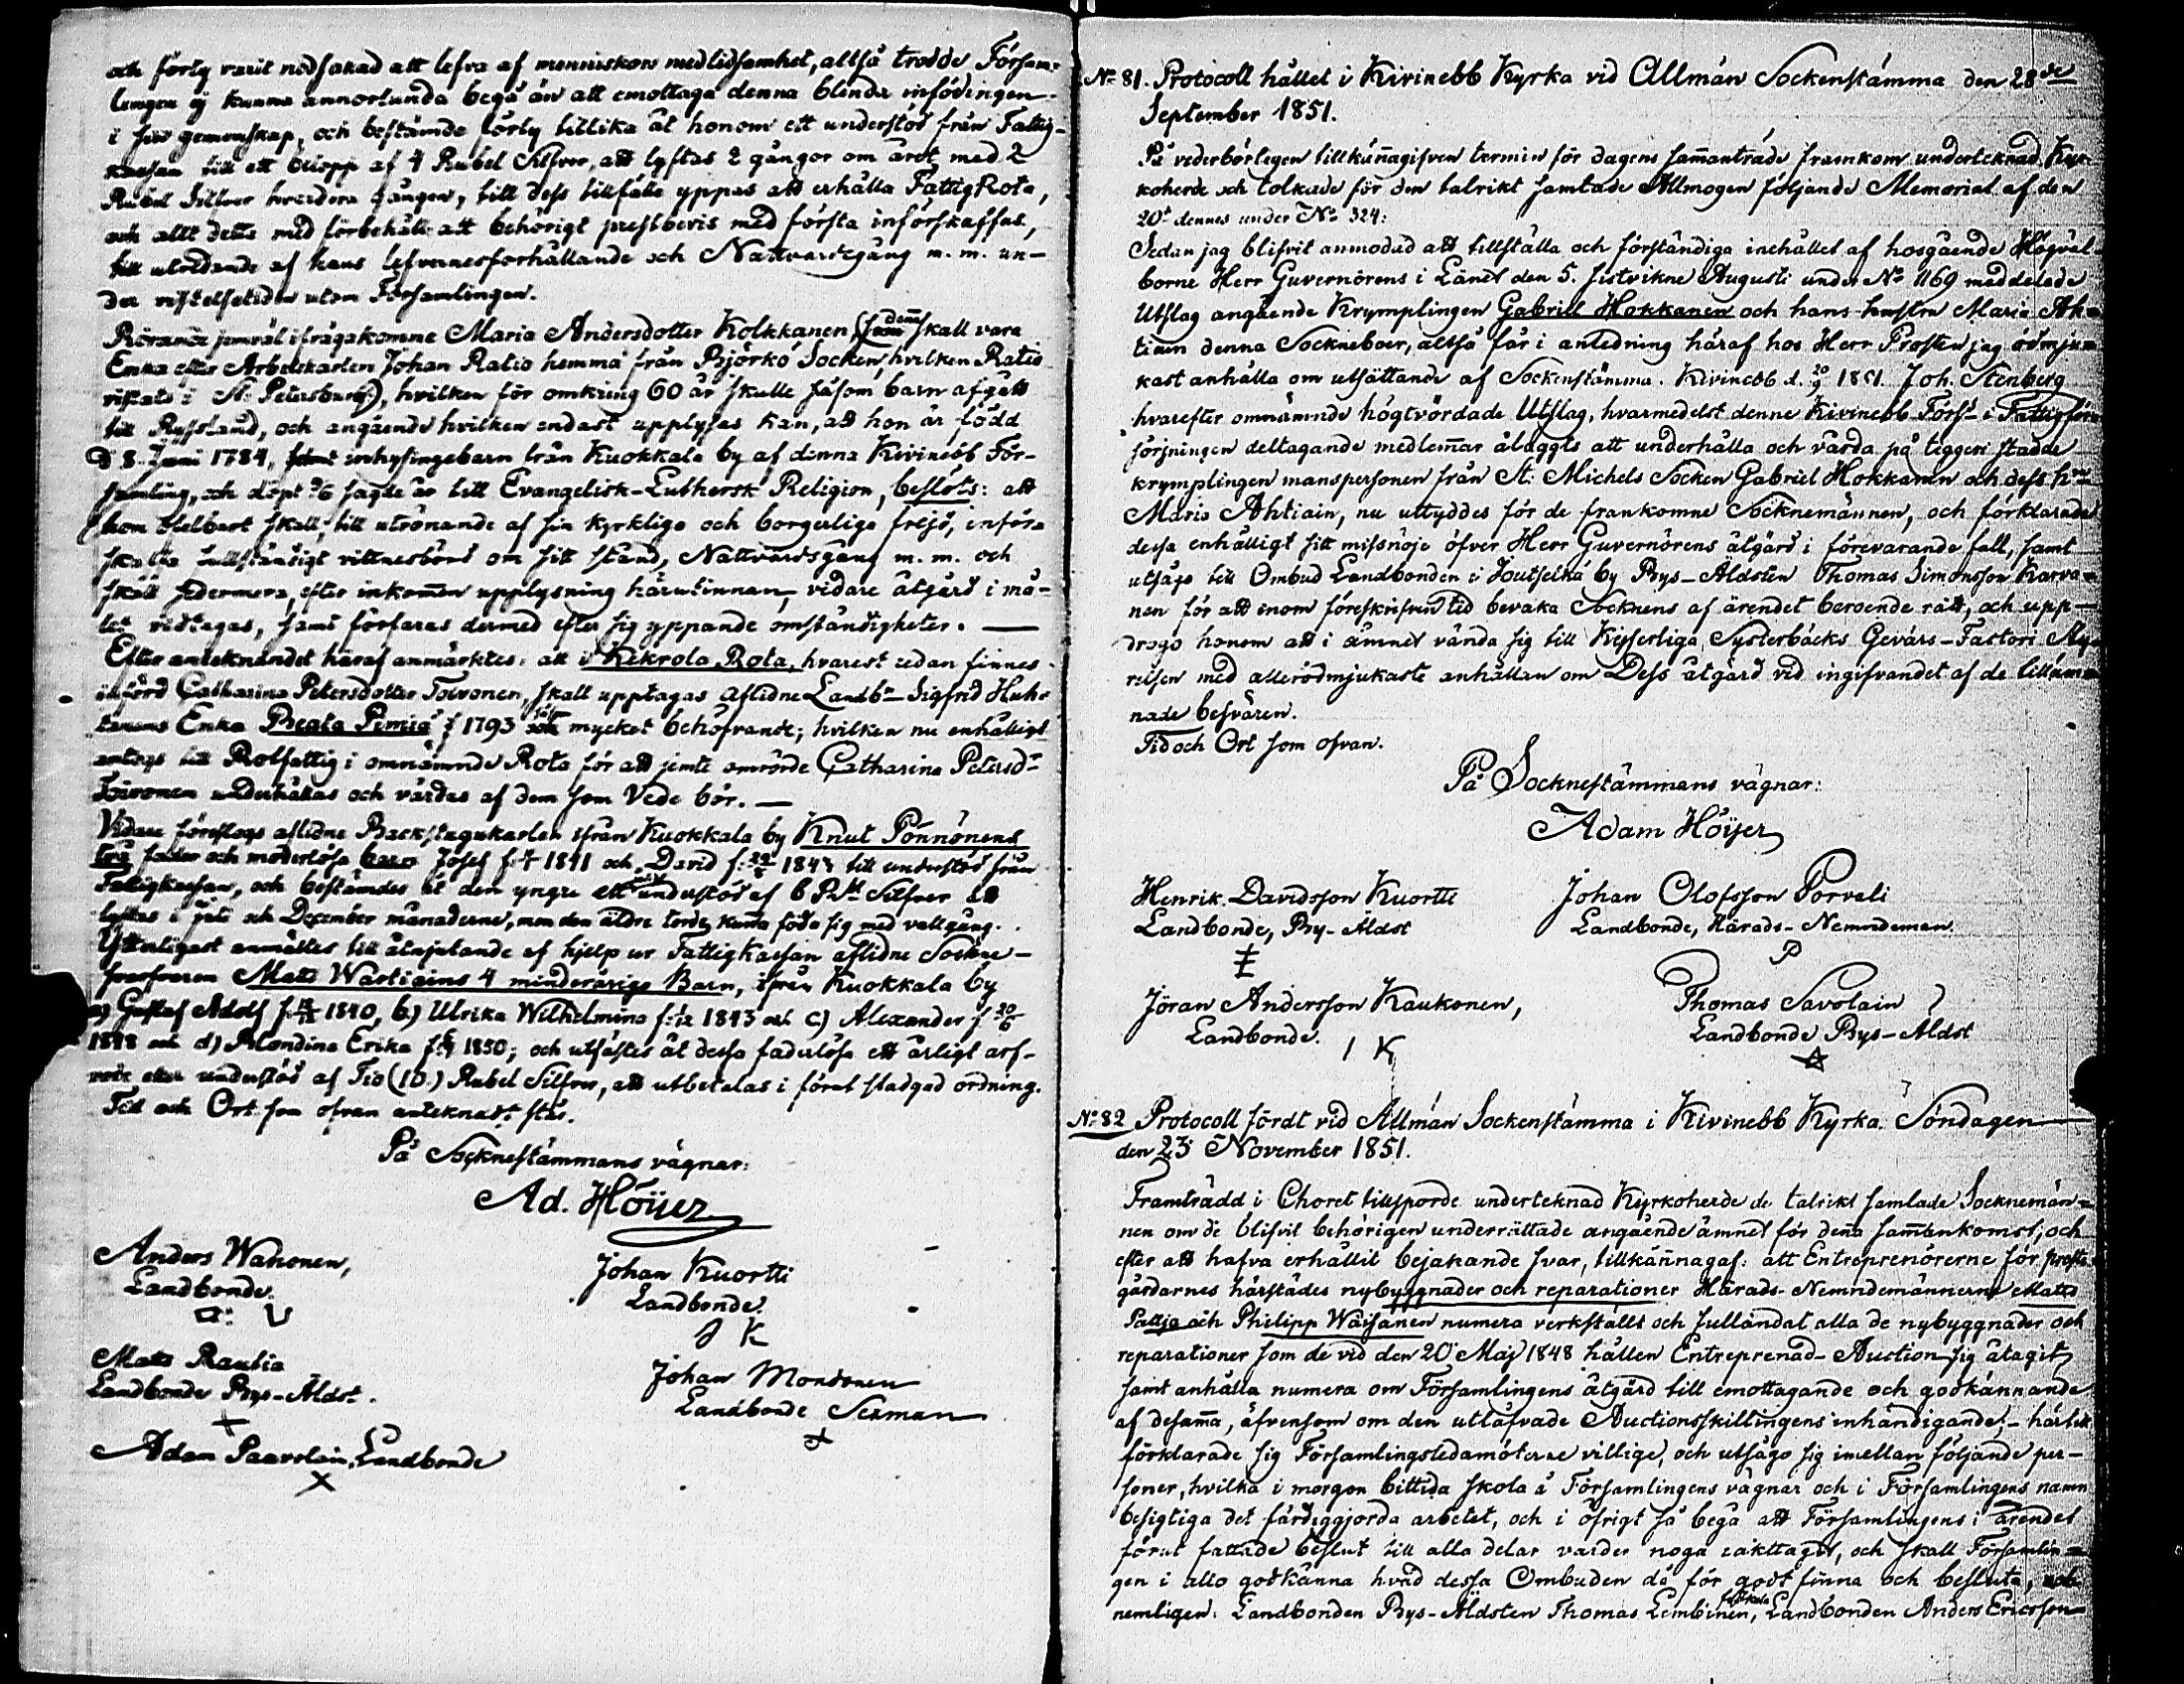 och förty varit nödsakad att lefva af menniskors medlidsamhet, altså trodde Försam-
lingen ej kunna annorlunda begå än att emottaga denna blinda infödingen
i sin gemenskap, och bestämde förty tillika åt honom ett understöd från Fattig-
kassan till ett belopp af 4 Rubel Silfver, att lyftas 2 gångor om året med 2
Rubel Silfver hvardera gången, till dess tillfälle yppas att erhålla FattigRota,
och allt detta med förbehåll: att behörigt prestbevis med första införskaffas,
till utredande af hans lefvernesförhållande och Nattvardsgång m. m. un-
der vistelsetiden utom Församlingen.
Rörande jemväl ifrågakomne Maria Andersdotter Kolkkanen, (denna skall vara
Enka efter Arbetskarlen Johan Ratio hemma från Björkö Socken, hvilken Ratio
vistats i St. Petersburg), hvilken för omkring 60 år skulle såsom barn afgått
till Ryssland, och angående hvilken endast upplysas kan, att hon är född
d. 8. Juni 1784, inhysingebarn från Kuokkala by af denna Kivinebb För-
samling, och döpt 9/6 sagde år till Evangelisk-Luthersk Religion, beslöts: att
hon sielbart skall, till utrönande af sin kyrkliga och borgerliga frejd, inför-
skaffa fullständigt vittnesbörd om sitt stånd, Nattvardsgång m. m. och
skall sedermera, efter inkommen upplysning härutinnan, vidare åtgärd i må-
let vidtagas, samt förfaras dermed efter sig yppande omständigheter. —
Efter antecknandet häraf anmärktes: att i Kekrola Rota, hvarest redan finnes
införd Catharina Petersdotter Toivonen, skall upptagas aflidne Landbn Sigfrid Huh-
tanens Enka Beata Pemiä f 1793 mycket behöfvande; hvilken nu enhälligt
antogs till Rotfattig i omnämnde Rota för att jemte omrörde Catharina Petersdr
Toivonen underhållas och vårdas af dem som Vede bör. —
Vidare föreslogs aflidne Backstugukarlen ifrån Kuokkala by Knut Pönnönens
två fader och moderlösa barn Josef 1841 och David 1843 till understöd från
Fattigkassan, och bestämdes åt den yngre ett understöd af 6 Rbl Silfver att
lyftas i Juli och December månaderne, men den äldre torde kunna föda sig med vallgång.
Ytterligast anmältes till åtnjutande af hjelp ur FattigKassan aflidne Sockne-
Mats Wartiains 4 minderåriga Barn, ifrån Kuokkala by
a) Gustaf Adolf 1840, b) Ulrika Wilhelmina 1843 och c) Alexander f 20/6
1848 och d) Blondina Erika 1850; och utfästes åt dessa faderlösa ett årligt arf-
vode eller understöd af Tio (10.) Rubel Silfver, att utbetalas i förut stadgad ordning.
Tid och Ort som ofvan antecknadt står.
På Socknestämmans vägnar:
Ad. Höijer
Anders Wahonen,
Landbonde.
Johan Kuortti
Landbonde.
J K
Mats Rautia
Landbonde Bys-Äldst.
Johan Mondonen
Landbonde Sexman
Adam Paavolain, Landbonde
No 81. Protocoll hållet i Kivinebb Kyrka vid Allmän Sockenstämma den 28de
September 1851.
På vederbörligen tillkännagifven termin för dagens sammanträde framkom undertecknad Kyr-
koherde och tolkade för den talrikt samlade Allmogen följande Memorial af den
20de dennes under No 324:
Sedan jag blifvit anmodad att tillställa och förständiga inehållet af hosgående Högväl-
borne Herr Guvernörens i Länet den 5. sistvikne Augusti under No 1169 meddelade
Utslag angående Krymplingen Gabriel Hokkanen och hans hustru Maria Ah-
tiain denna Sockneboer, altså får i anledning häraf hos Herr Prosten jag ödmju-
kast anhålla om utsättande af Sockenstämma. Kivinebb d. 20/9 1851. Joh. Stenberg
hvarefter omnämnde högtvördade Utslag, hvarmedelst denne Kivinebb Förs:s i Fattigför-
sörjningen deltagande medlemmar ålaggts att underhålla och vårda på tiggeri stadde
krymplingen manspersonen från St. Michels Socken Gabriel Hokkanen och dess h:u
Maria Ahtiain, nu uttyddes för de framkomne Socknemännen, och förklarade
dessa enhälligt sitt missnöje öfver Herr Guvernörens åtgärd i förevarande fall, samt
utsågo till Ombud Landbonden i Joutselkä by Bys-Äldsten Thomas Simonsson Karva-
nen för att inom föreskrifven tid bevaka Socknens af ärendet beroende rätt, och upp-
drogo honom att i ämnet vända sig till Kejserliga Systerbäcks Gevärs-Factori Sty-
relsen med alleródmjukaste anhållan om Dess åtgärd vid ingifvandet af de tillärn-
nade besvären.
Tid och Ort som ofvan.
På Socknestämmans vägnar:
Adam Höijer
Henrik Davidsson Kuortti
Landbonde, By-Äldst
Johan Olofsson Porvali
Landbonde, Härads-Nemndeman.
P
Jöran Andersson Kaukonen,
Landbonde.
I K
Thomas Savolain
Landbonde Bys-Äldst
No 82 Protocoll fördt vid Allmän Sockenstämma i Kivinebb Kyrka Söndagen
den 23 November 1851.
Framträdd i Choret tillsporde undertecknad Kyrkoherde de talrikt samlade Socknemän-
nen om de blifvit behörigen underrättade angående ämnet för denna sammankomst; och
efter att hafva erhållit bejakande svar, tillkännagaf: att Entreprenörerne för prest-
gårdarnes härstädes nybyggnader och reparationer Härads-Nemndemännerne Matts
Pattja och Philipp Wäisänen numera verkställt och fulländat alla de nybyggnader och
reparationer som de vid den 20 Maj 1848 hållen Entreprenad-Auction sig åtagit,
samt anhålla numera om Församlingens åtgärd till emottagande och godkännande
af desamma, äfvensom om den utlåfvade Auctionsskillingens inhändigande; – härtill
förklarade sig Församlingsledamöterne villige, och utsågo sig imellan följande per-
soner, hvilka i morgon bittida skola å Församlingens vägnar och i Församlingens namn
besigtiga det färdiggjorda arbetet, och i öfrigt så begå att Församlingens i ärendet
förut fattade beslut till alla delar varder noga iakttaget, och skall Församlin-
gen i allo godkänna hvad dessa Ombuden då för godt finna och besluta,
nemligen: Landbonden Bys-Äldsten Thomas Lembinen, Landbonden Anders Ericsson